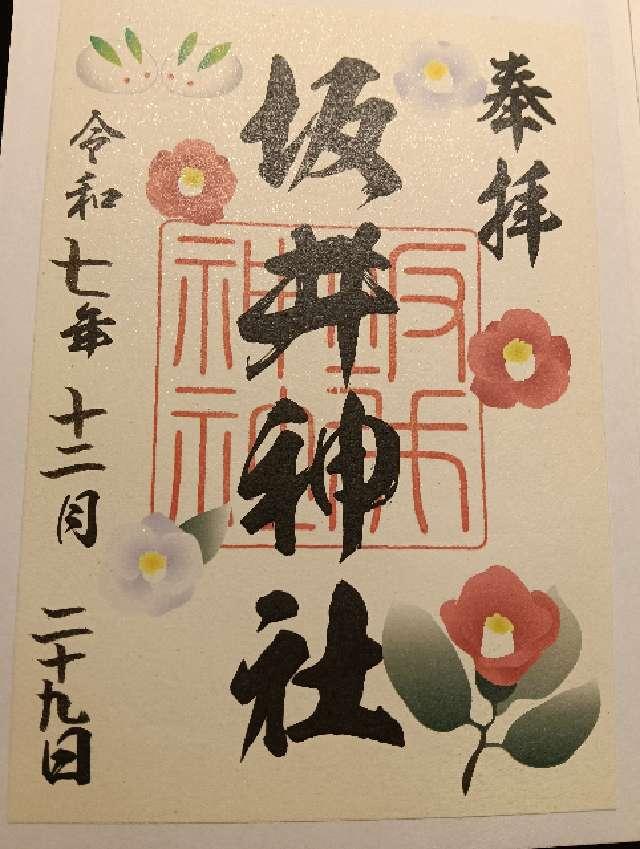 奉拝
坂井神社
令和七年十二月二十九日